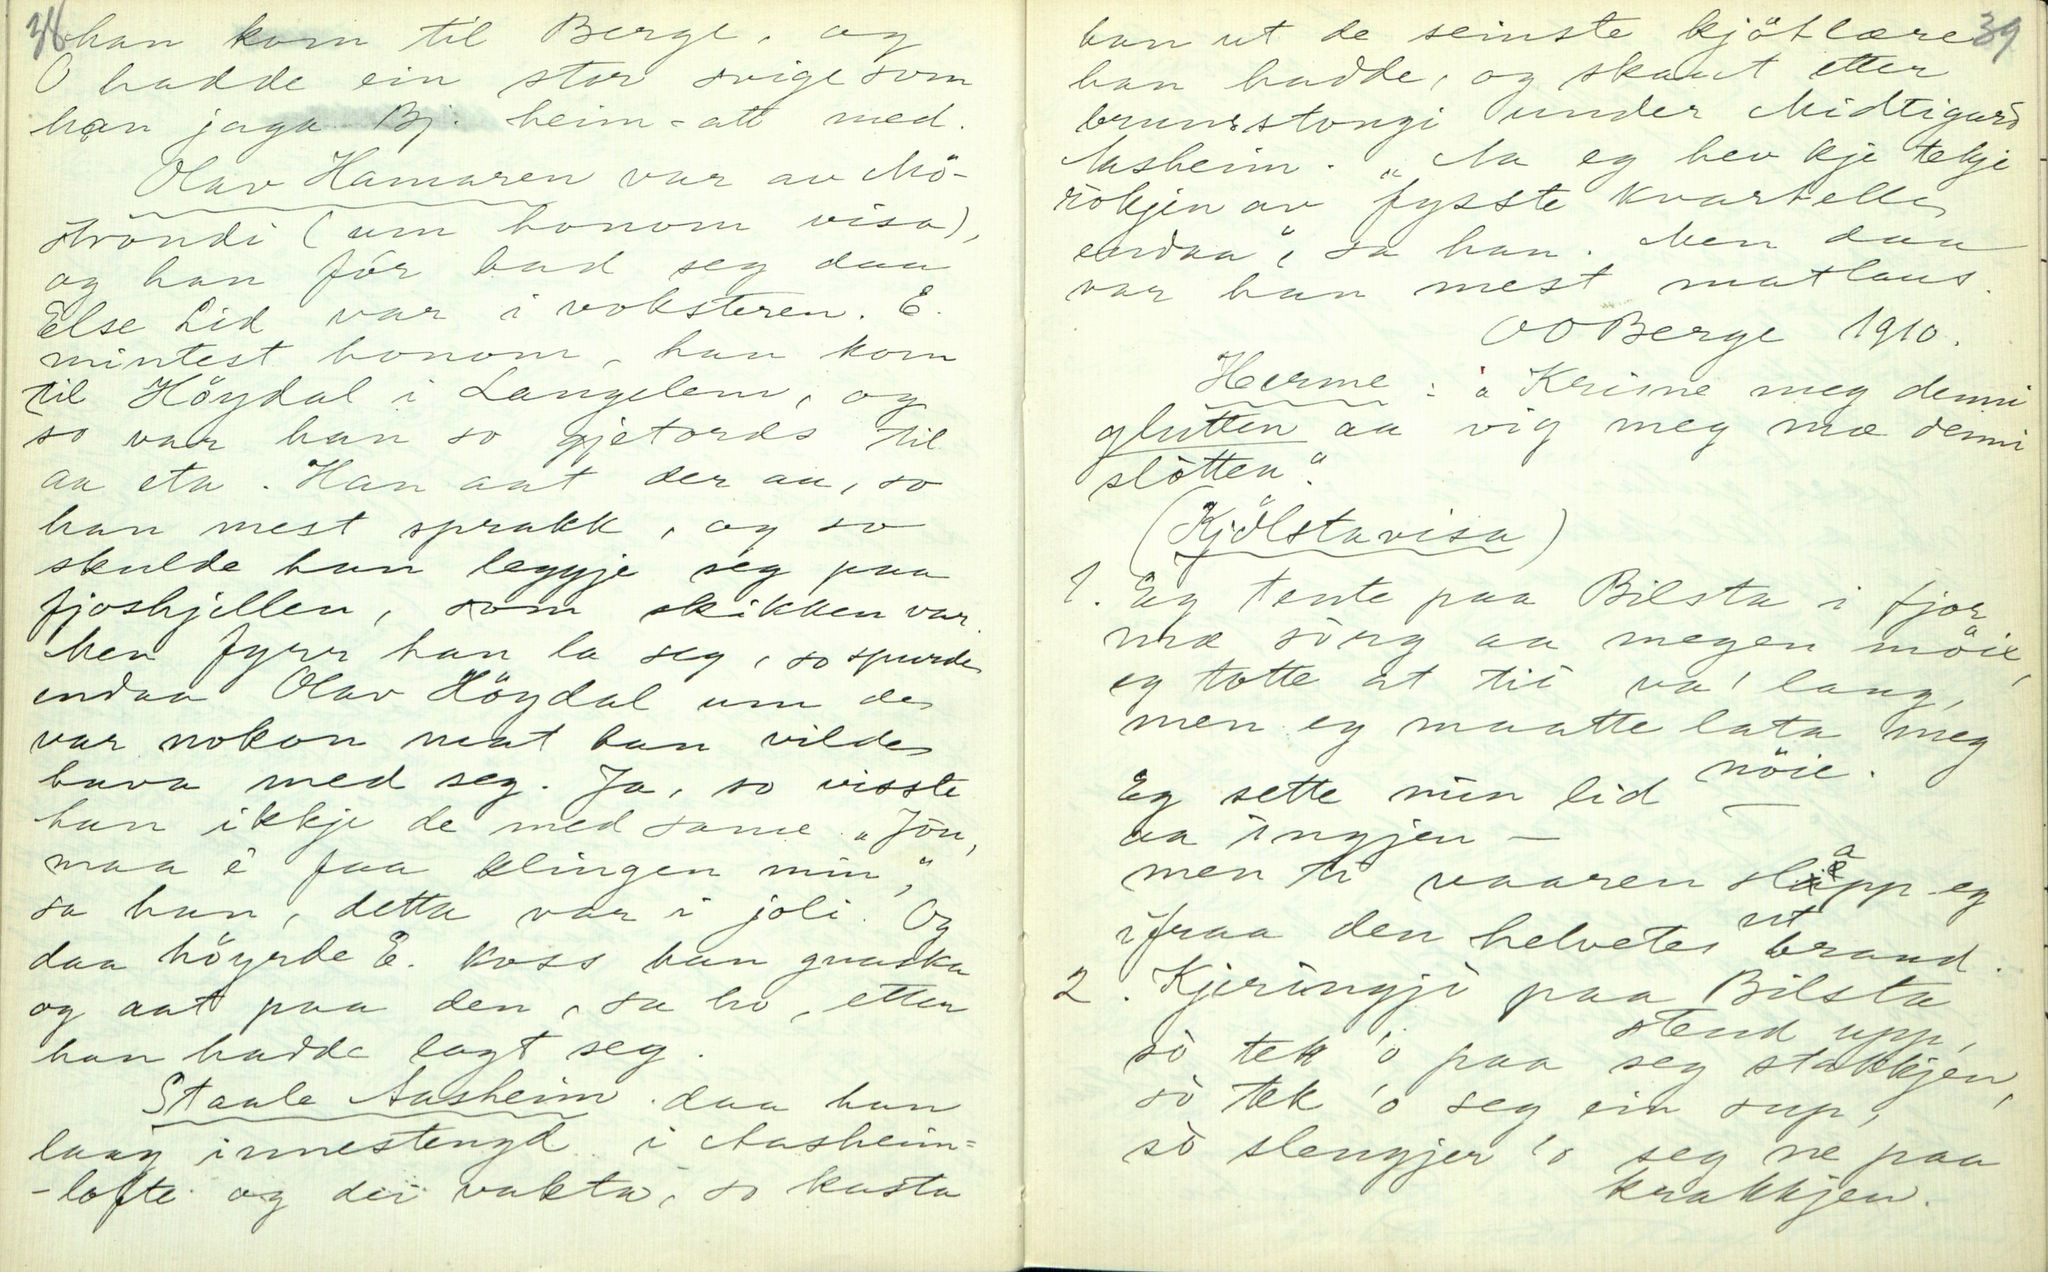 38 han kom til Berge, og
O hadde ein stor svige som
han jaga Bj. heim-att med.
Olav Hamaren var av Mö-
ströndi (um honom visa),
og han fór bad seg daa
Else Lid var i voksteren. E.
mintest honom, han kom
til Höydal i Langelem, og
so var han so gjetords til
aa eta. Han aat der aa, so
han mest sprakk, og so
skulde han leggje seg paa
fjoshjellen, som skikken var.
Men fyrr han la seg, so spurde
endaa Olav Höydal um de
var nokon mat han vilde
hava med seg. Ja, so visste
han ikkje de med same. "Jou,
maa é faa klingen min",
sa han, detta var i joli. Og
daa höyrde E. koss han gnaska
og aat paa den, sa ho, etter
han hadde lagt seg.
Staale Aasheim. daa han
laag innestengd i Aasheim-
-lofte og dei vakta, so kasta
39
han ut de seinste kjötlære
han hadde, og skaut etter
brunsstongi under Midtigard
Aasheim. "Aa eg hev kje tekje
rökjen av fysste kvartelle
endaa", sa han. Men daa
var han mest matlaus.
OO Berge 1910.
Herme: "Krisne meg denni
glutten aa vig meg mæ denni
slötten".
(Kjölstavisa)
1. Eg tente paa Bilsta i fjor
mæ sörg aa megen möie,
eg totte at tii va' lang,
men eg maatte lata meg
nöie.
Eg sette min lid
aa ingjen —
men ti vaaren slapp eg
ut
ifraa den helvetes brand.
2. Kjeringji paa Bilsta
stend upp,
sò tek 'o paa seg stakkjen,
sò tek 'o seg ein sup,
sò slengjer 'o seg ne paa
krakkjen.